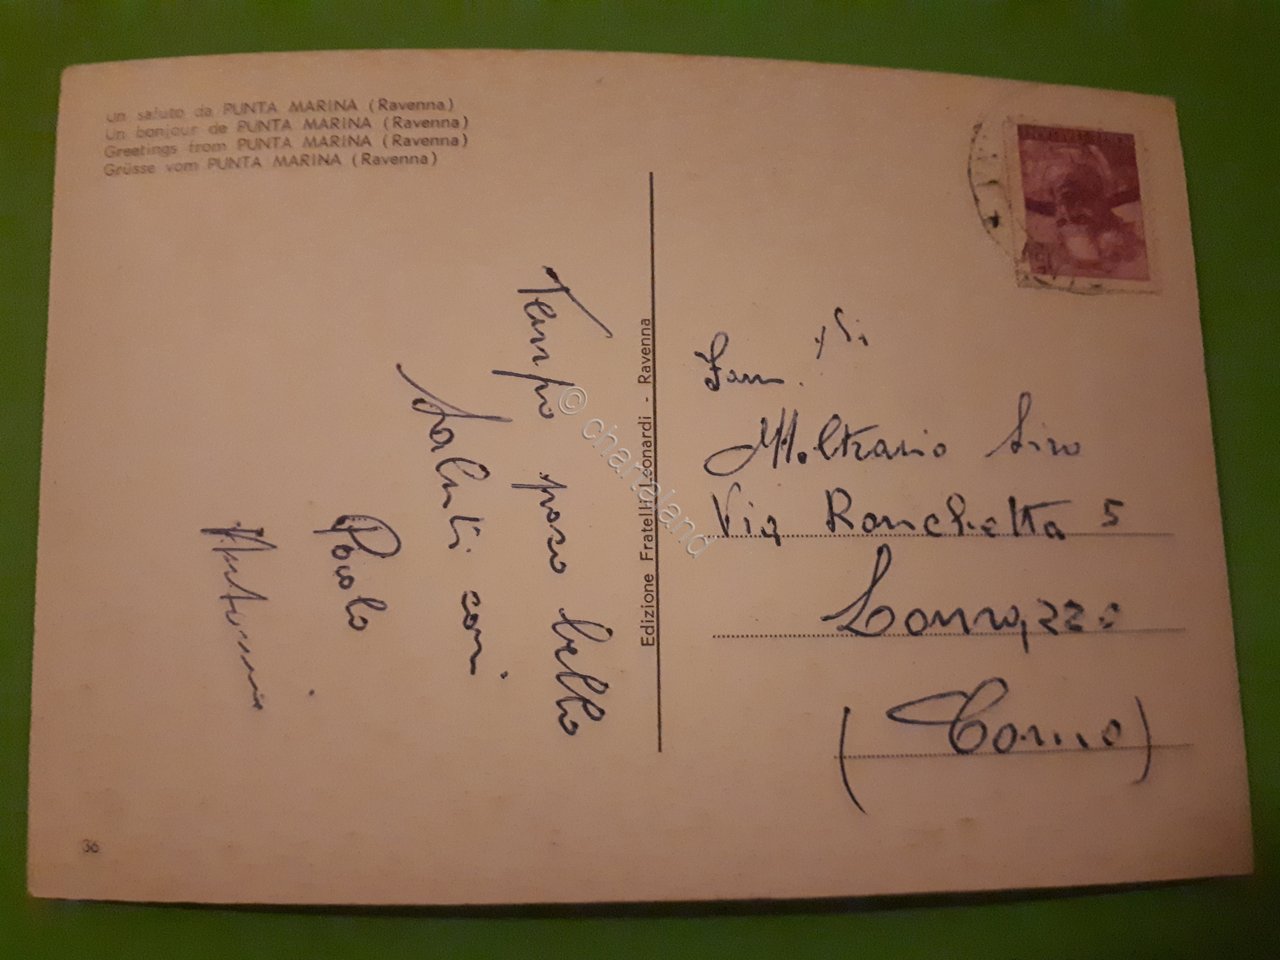 Un saluto da PUNTA MARINA (Ravenna)
Un bonjour de PUNTA MARINA (Ravenna)
Greetings from PUNTA MARINA (Ravenna)
Grüsse vom PUNTA MARINA (Ravenna)
Tempo poco bello
Saluti cari
Paolo
Antonia
Edizione Fratelli Leonardi - Ravenna
© chartaland
Fam.
Moltrasio Siro
Via Ronchetta 5
Lomazzo
(Como)
36